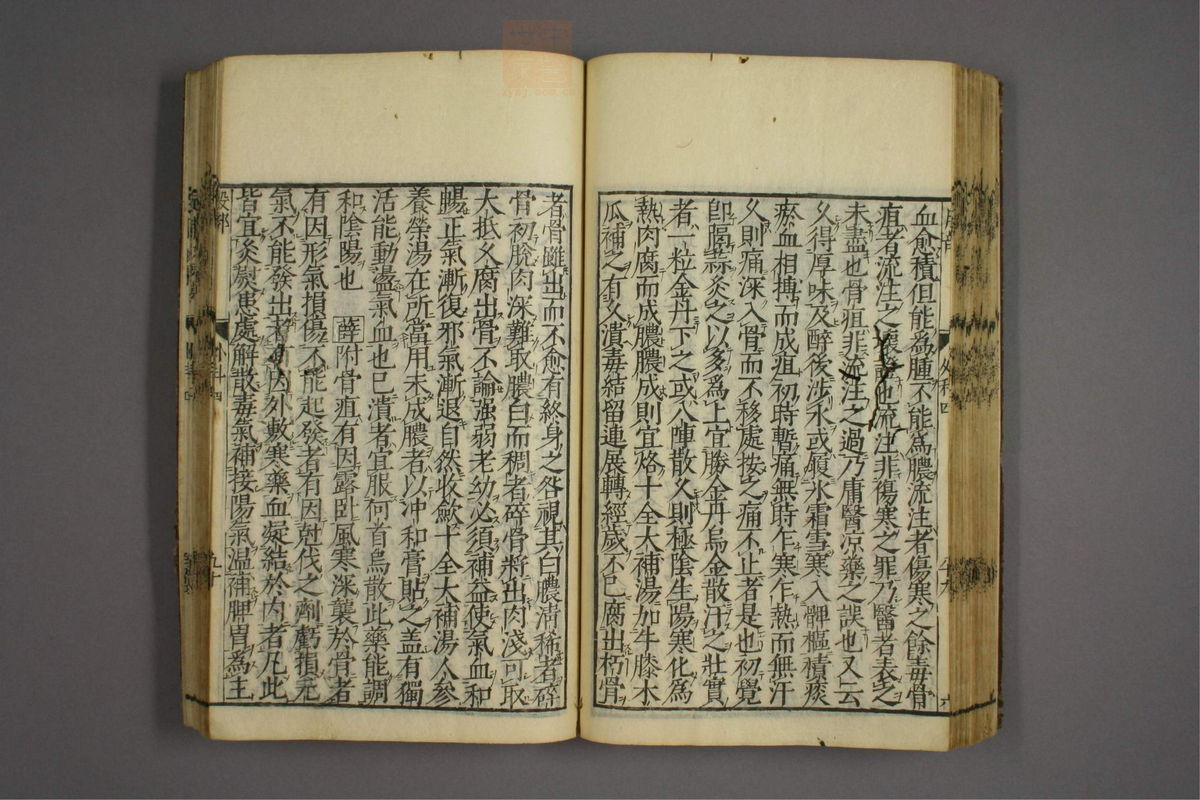 血愈積但能為腫不能為膿流注者傷寒之餘毒骨
疽者流注之壞也流注非傷寒之罪乃醫者表之
未盡也骨疽非流注之過乃庸醫凉藥之誤也又云
久得厚味及醉後涉水或履氷霜雪寒入髀樞積痰
瘀血相搏而成疽初時暫痛無時乍寒乍熱而無汗
久則痛深入骨而不移處按之痛不止者是也初覺
即隔蒜灸之以多為上宜勝金丹烏金散汗之壯實
者一粒金丹下之或八陣散久則極陰生陽寒化為
熱肉腐而成膿膿成則宜烙十全大補湯加牛膝木
瓜補之有久潰毒結留連展轉經歲不已腐出朽骨
者骨雖出而不愈有終身之咎視其白膿清稀者碎
骨初脫肉深難取膿白而稠者碎骨將出肉淺可取
大抵久腐出骨不論強弱老幼必須補益使氣血和
暢正氣漸復邪氣漸退自然收斂十全大補湯人參
養榮湯在所當用未成膿者以冲和膏貼之盖有獨
活能動盪氣血也已潰者宜服何首烏散此藥能調
和陰陽也 薛附骨疽有因露卧風寒深襲於骨者
有因形氣損傷不能起發者有因尅伐之劑虧損元
氣不能發出者有因外敷寒藥血凝結於内者凡此
皆宜灸熨患處解散毒氣補接陽氣温補脾胃為主
外科四
九十